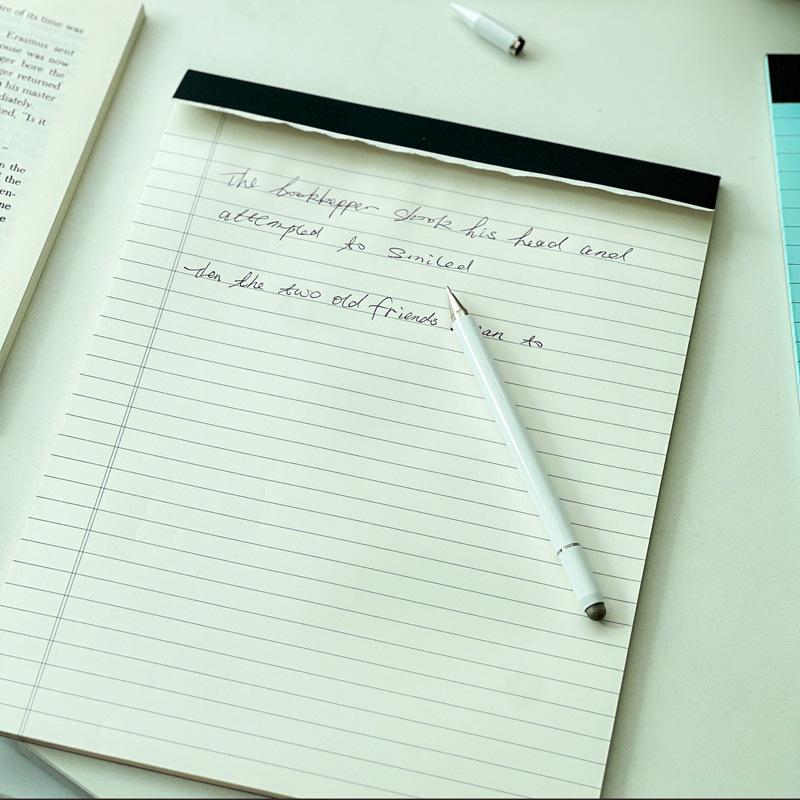 re of its time was
Erasmus sent
ouse was now
ger bore the
ger returned
his master
diately.
ked, "Is it
n the
d the
en-
ne
e
The bookkepper shook his head and
attempled to Smiled
then the two old friends to